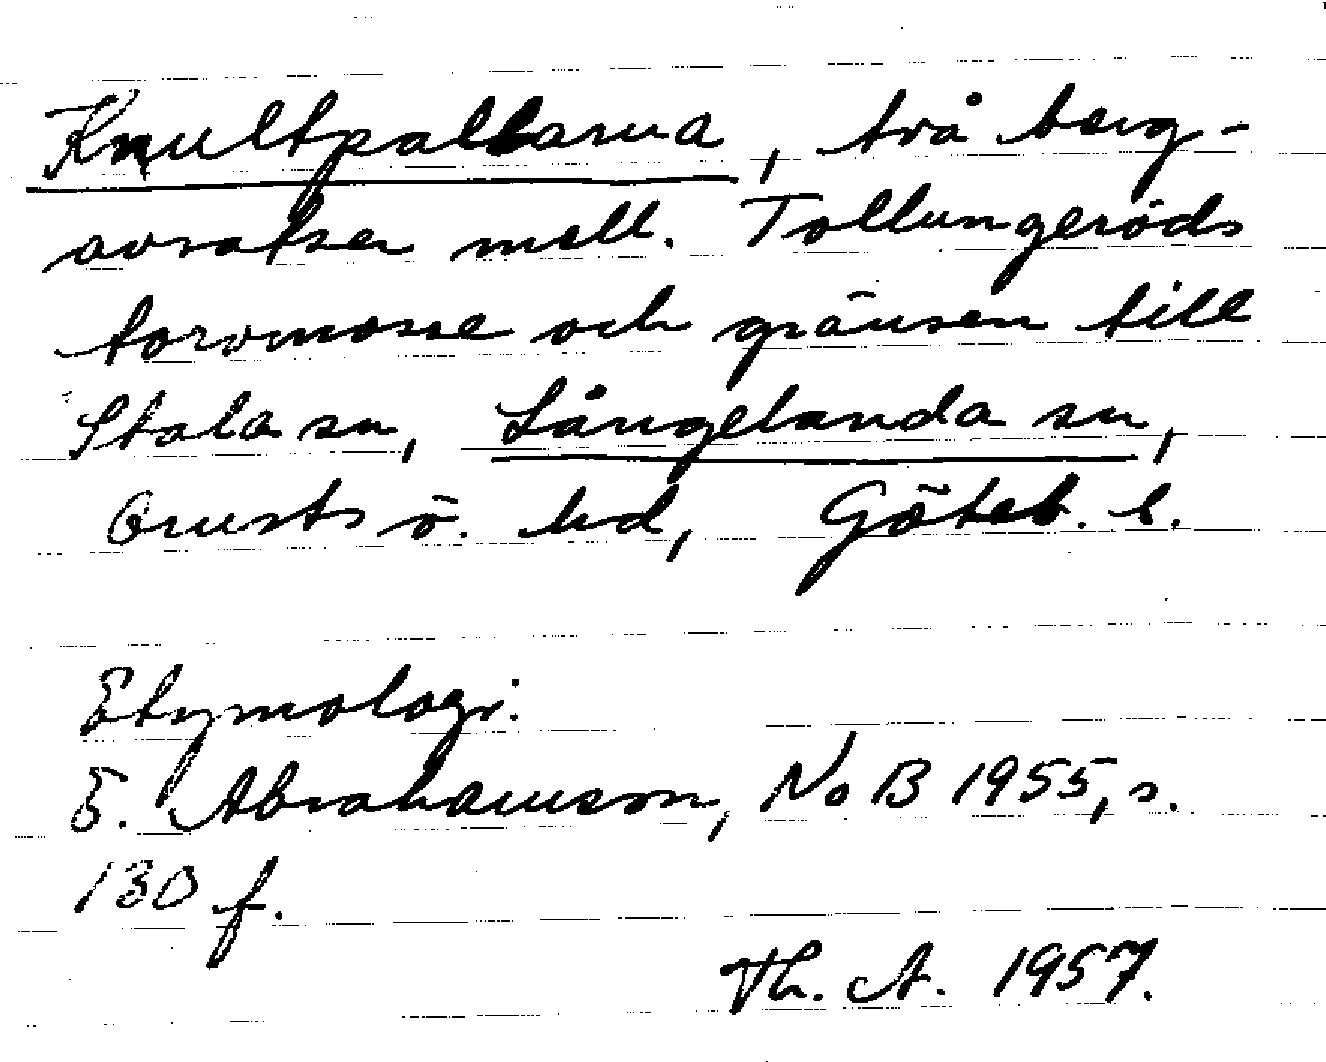 Knultpallarna, två berg-
avsatser mell. Tollungeröds
torvmosse och gränsen till
Stala sn, Långelanda sn,
Orusts ö. hd, Göteb. l.
Etymologi.
E. Abrahamson, NoB 1955, s.
130 f.
Th. A. 1957.